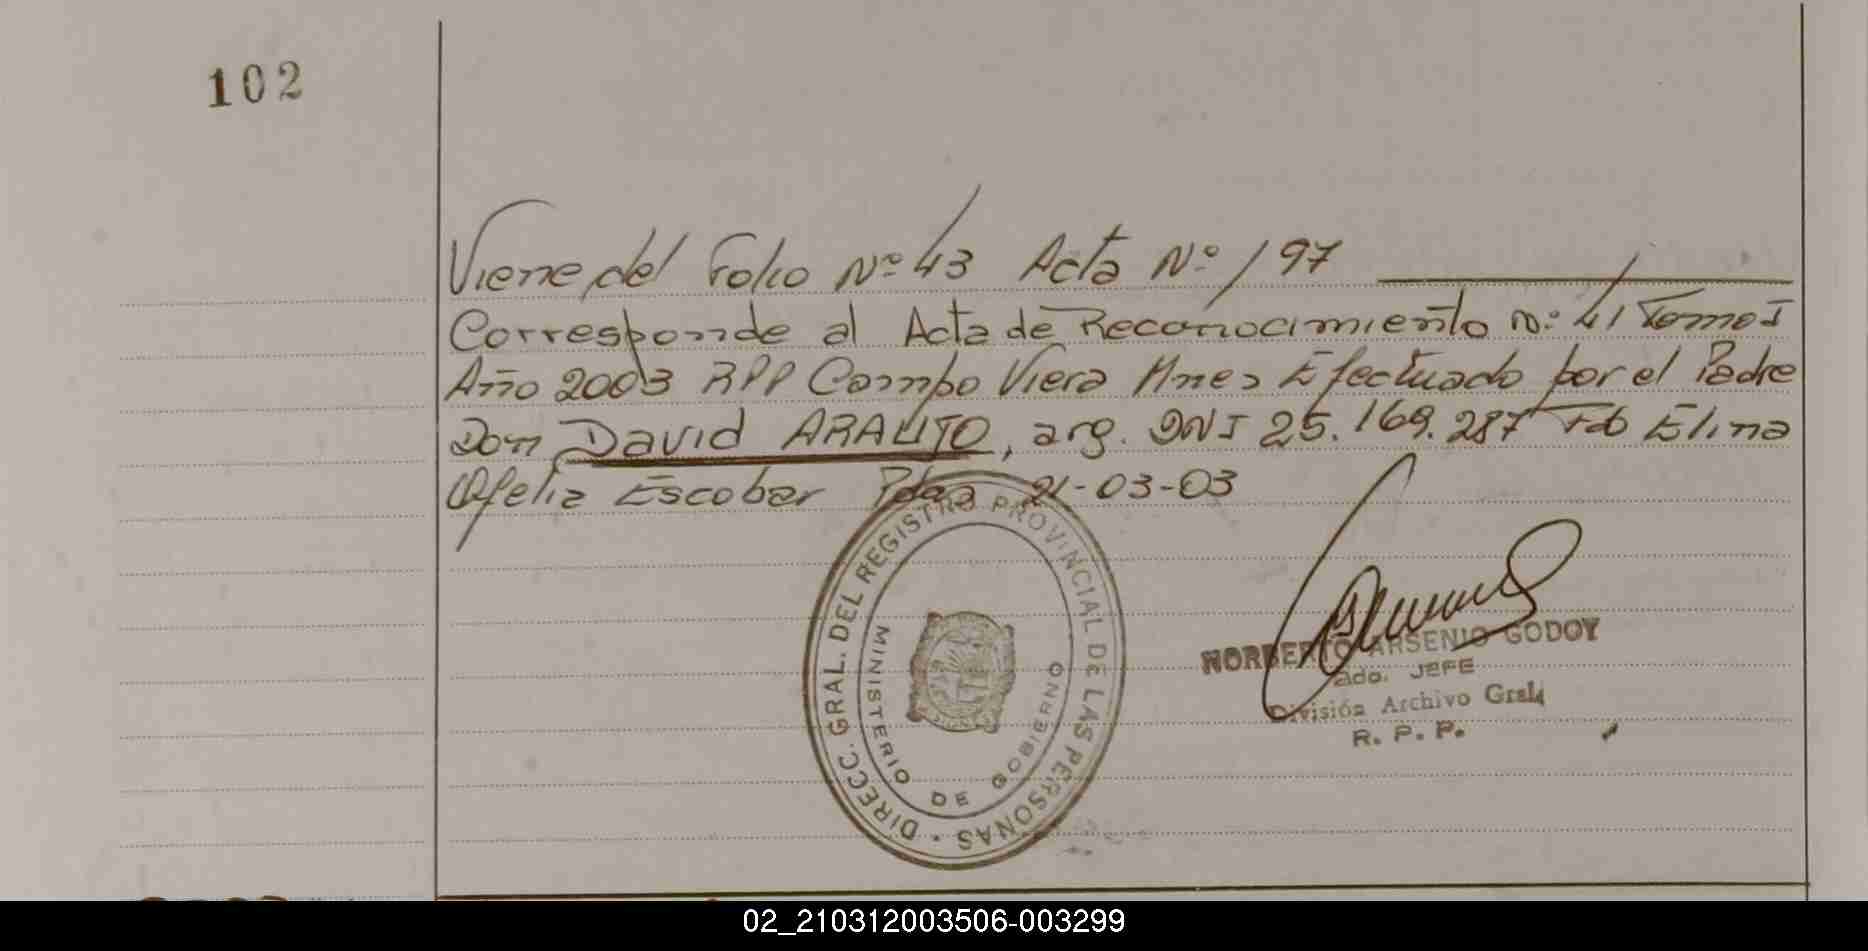 102
Viene del Folio Nº 43 Acta Nº 197
Corresponde al Acta de Reconocimiento Nº 41 Tomo I
Año 2003 RPP Campo Viera Mnes Efectuado por el Padre
Don David ARAUJO, arg. DNI 25.169.287 Fdo Elina
Ofelia Escobar Pdas 21-03-03
DIRECC. GRAL. DEL REGISTRO PROVINCIAL DE LAS PERSONAS
MINISTERIO DE GOBIERNO
NORBERTO ARSENIO GODOY
2do. JEFE
División Archivo Gral
R. P. P.
02_210312003506-003299